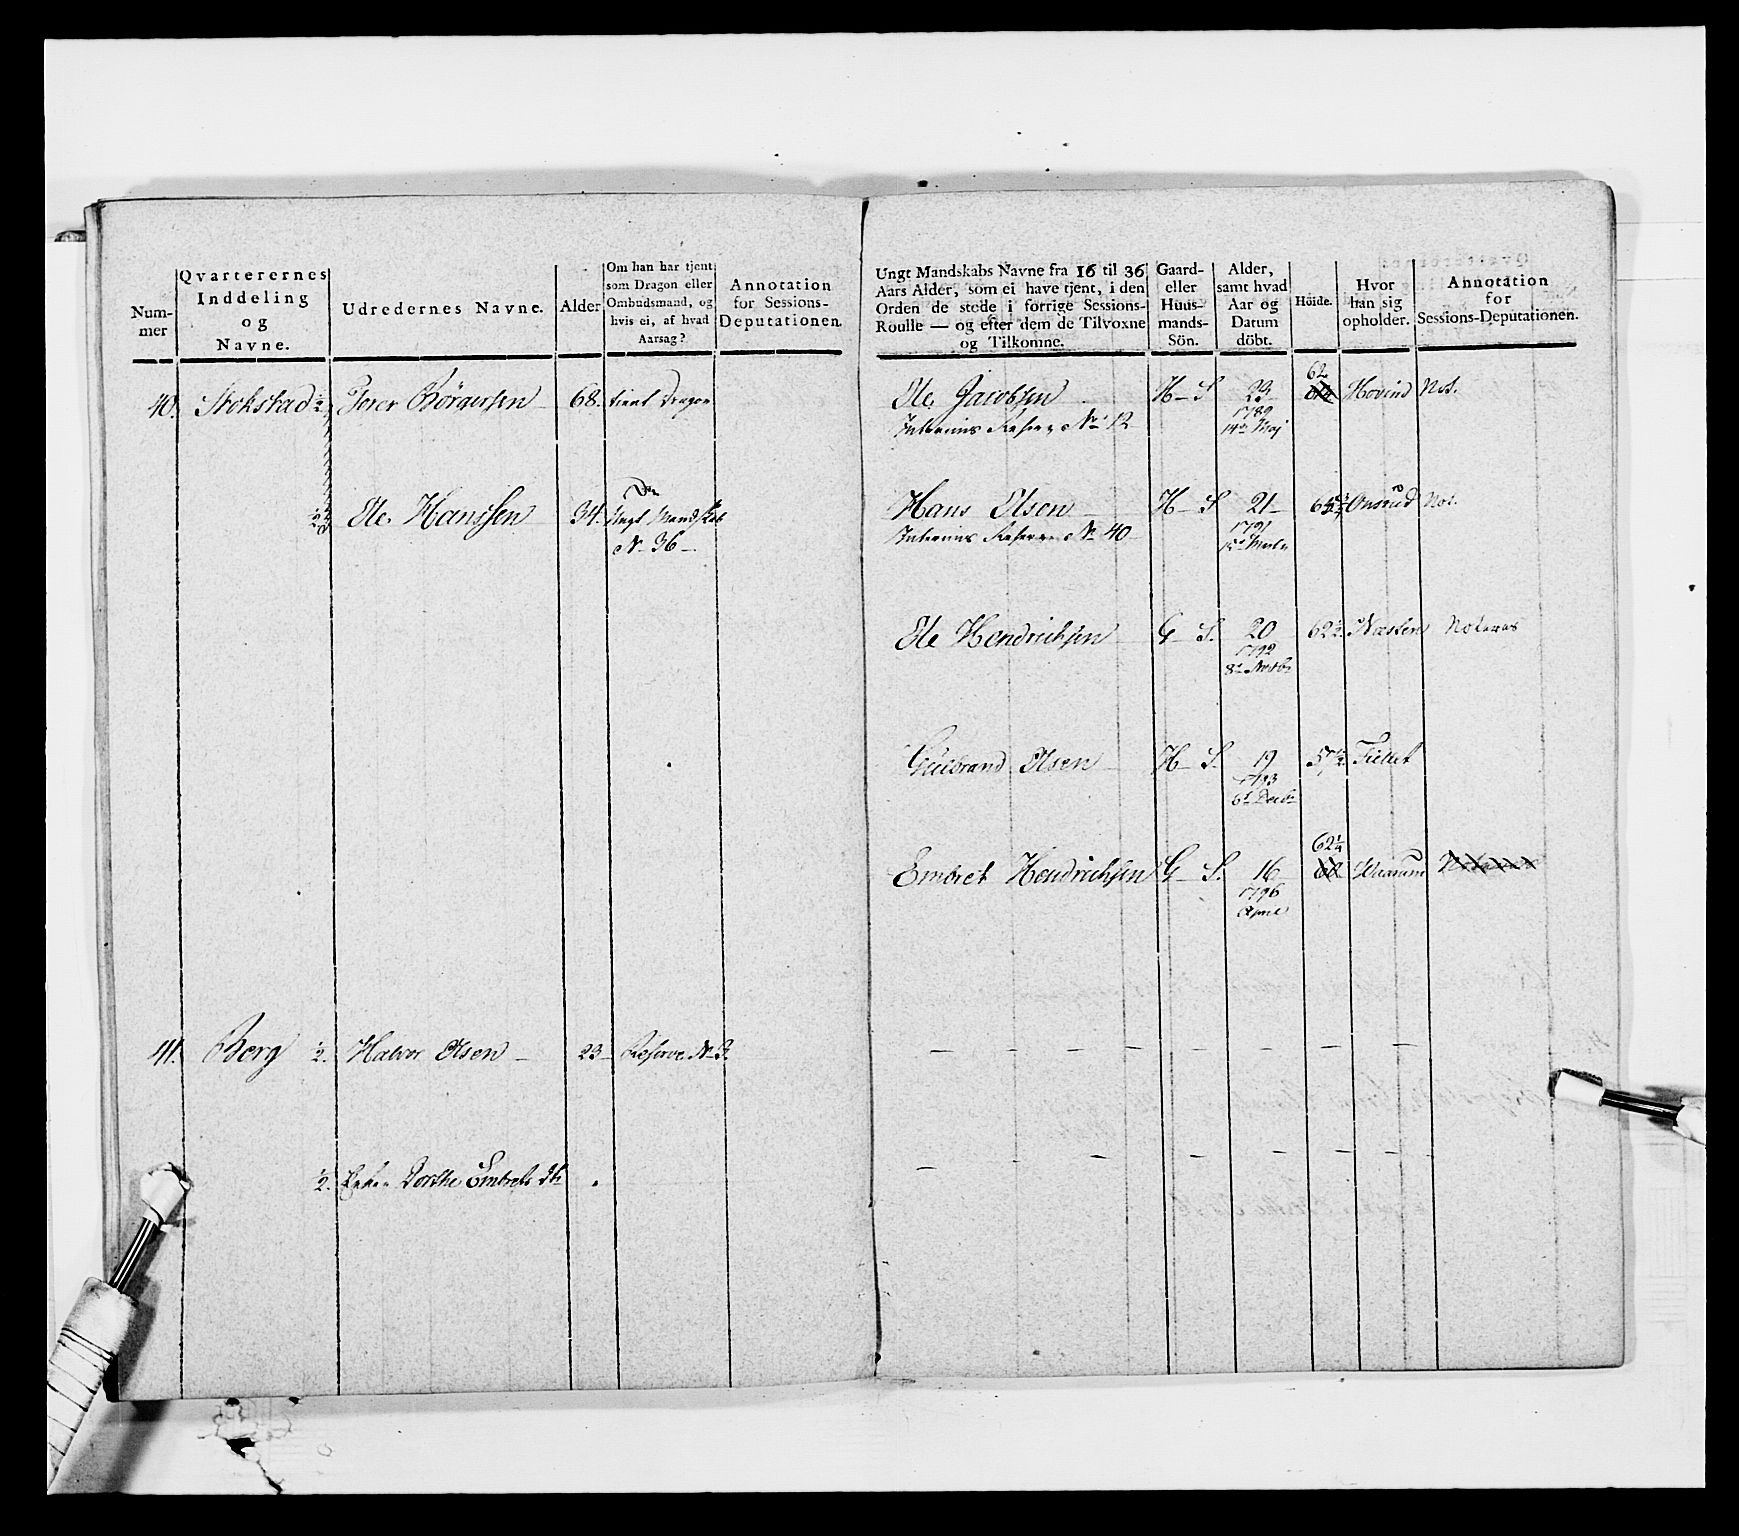 Num-
mer
Qvarterernes
Inddeling
og
Navne.
Udredernes Navne.
Alder
Om han har tjent
som Dragon eller
Ombudsmand, og
hvis ei, af hvad
Aarsag?
Annotation
for Sessions-
Deputationen.
40. Stokstad ½ Börgersen 68. tient Dragon
Ole Hanssen 34.
No 36
41. Berg ½. Halvor Olsen 23 Reserve No 3.
½. Dorthe Embrets
Ungt Mandskabs Navne fra 16 til 36
Aars Alder, som ei have tjent, i den
Orden de stede i forrige Sessions-
Roulle — og efter dem de Tilvoxne
og Tilkomne.
Gaard-
eller
Huus-
mands-
Sön.
Alder,
samt hvad
Aar og
Datum
döbt.
Höide.
Hvor
han sig
opholder.
Annotation
for
Sessions-Deputationen.
62
Ole Jacobsen H - S 23 Hovind Not.
Interims Reserve No 12 1789
14de Maj
Hans Olsen H - S 21 Onsrud Not.
Interims Reserve No 40 1791
Ole Hendrichsen G - S. 20 62½ Næsten Noteres
1792
8de
Gulbrand Olsen H - S. 19
1793
6te Decbr
62¼
Embret Hendrichsen G - S. 16
1796
April